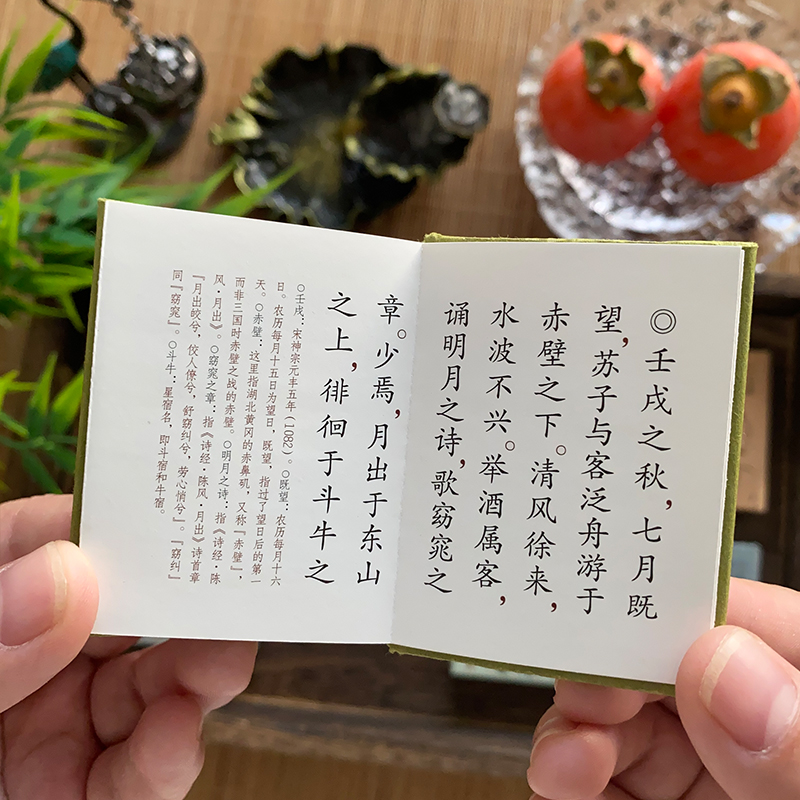 ◎壬戌之秋，七月既
望，苏子与客泛舟游于
赤壁之下。清风徐来，
水波不兴。举酒属客，
诵明月之诗，歌窈窕之
章。少焉，月出于东山
之上，徘徊于斗牛之
○壬戌：宋神宗元丰五年（1082）。○既望：农历每月十六
日。农历每月十五日为望日，既望，指过了望日后的第一
天。○赤壁：这里指湖北黄冈的赤鼻矶，又称『赤壁』，
而非三国时赤壁之战的赤壁。○明月之诗：指《诗经·陈
风·月出》。○窈窕之章：指《诗经·陈风·月出》诗首章
『月出皎兮，佼人僚兮，舒窈纠兮，劳心悄兮』。『窈纠』
同『窈窕』。○斗牛：星宿名，即斗宿和牛宿。